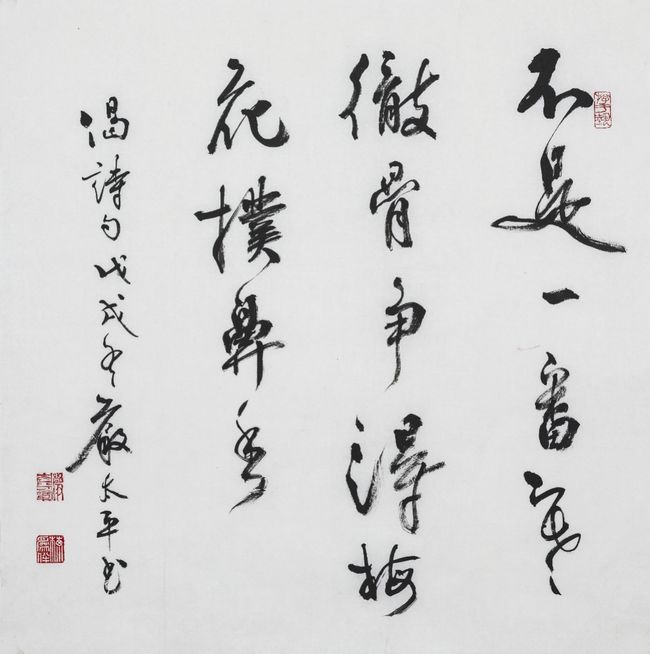 不是一番寒
徹骨争得梅
花撲鼻香
偈詩句戊戌冬嚴太平书